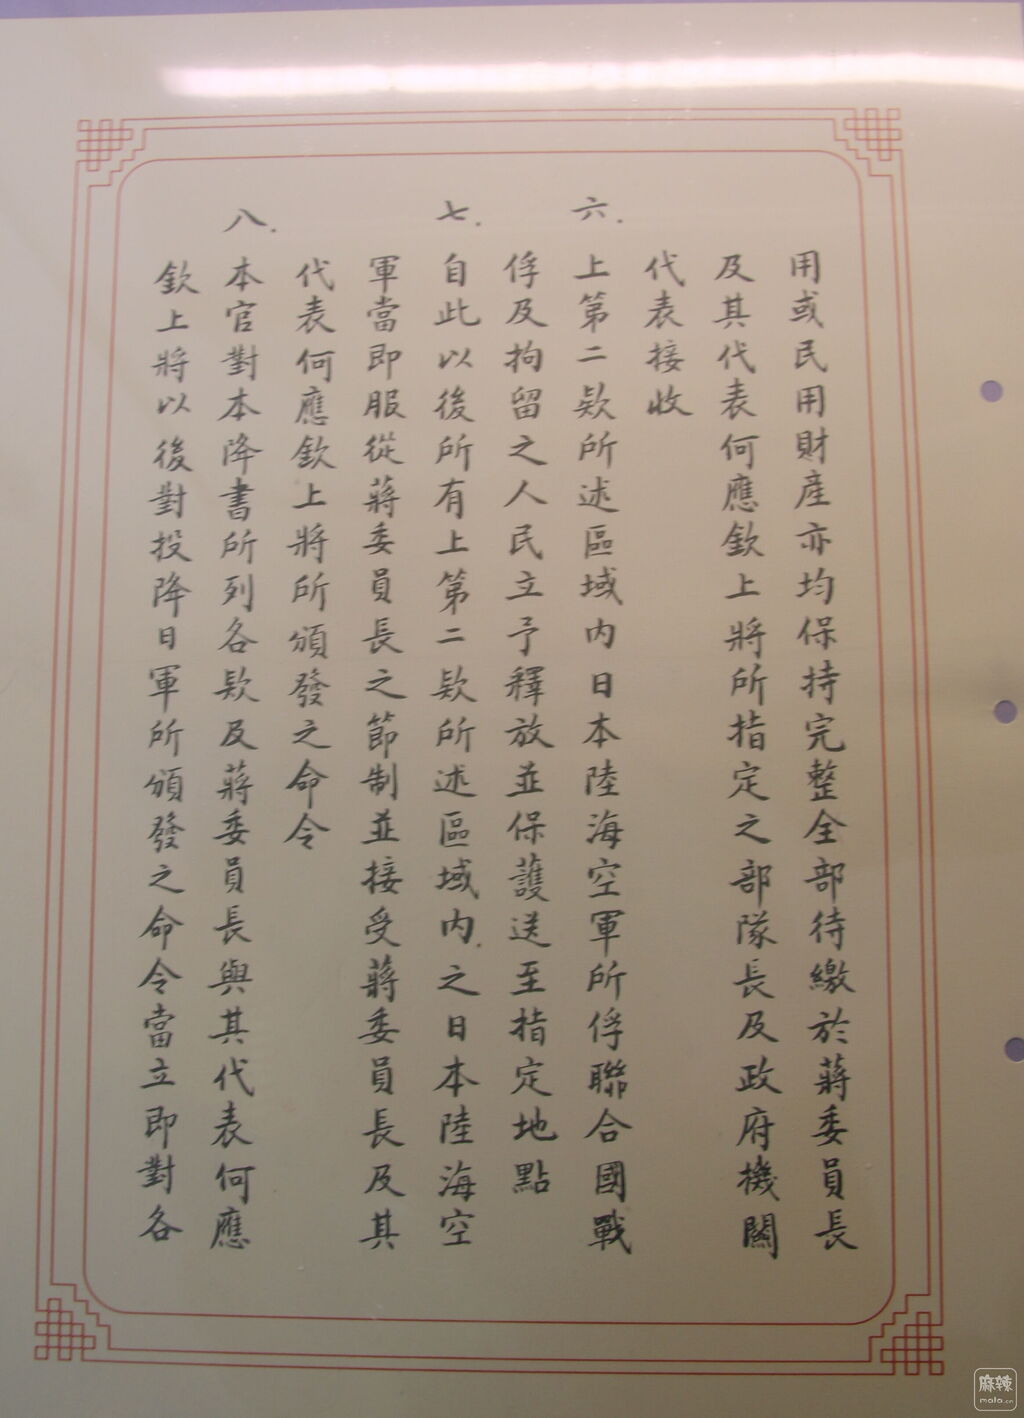 用或民用財產亦均保持完整全部待繳於蔣委員長
及其代表何應欽上將所指定之部隊長及政府機關
代表接收
六.上第二款所述區域內日本陸海空軍所俘聯合國戰
俘及拘留之人民立予釋放並保護送至指定地點
七.自此以後所有上第二款所述區域內.之日本陸海空
軍當即服從蔣委員長之節制並接受蔣委員長及其
代表何應欽上將所頒發之命令
八.本官對本降書所列各款及蔣委員長與其代表何應
欽上將以後對投降日軍所頒發之命令當立即對各
麻辣
mala.cn